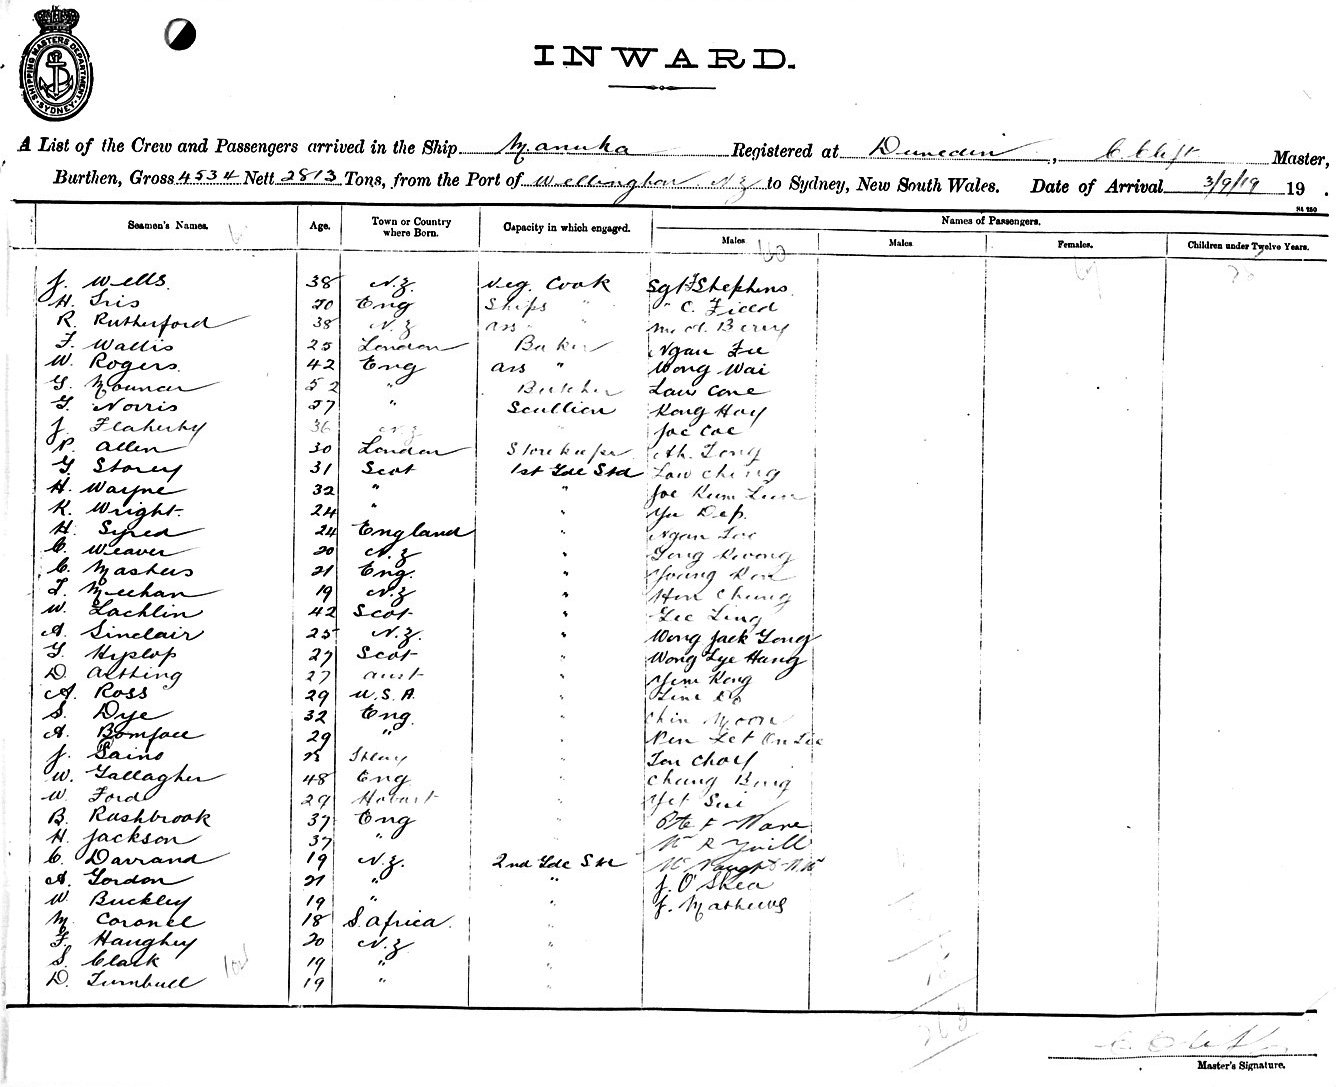 SHIPPING MASTERS DEPARTMENT SYDNEY
INWARD.
A List of the Crew and Passengers arrived in the Ship Manuka Registered at Dunedin, C Clift Master,
Burthen, Gross 4534 Nett 2813 Tons, from the Port of Wellington NZ to Sydney, New South Wales. Date of Arrival 3/9/19 19 .
Seamen's Names. Age. Town or Country where Born. Capacity in which engaged. Names of Passengers.
Males Males. Females. Children under Twelve Years.
J. Wells. 38 N.Z. Veg. Cook Sgt Stephens.
H. Iris 20 Eng Ships " " C. Field
R. Rutherford 38 N.Z ass " " Berry
F. Wallis 25 London Baker Ngan Fee
W. Rogers. 42 Eng ass " Wong Wai
G. Mouncer 52 " Butcher Law Cone
G. Norris 27 " Scullion Kong Hoy
J. Flaherty 36 N.Z " Joe Coe
P. Allen 30 London Storekeeper Ah. Fong
G. Storey 31 Scot 1st Sde Std Low Ching
H. Wayne 32 " " Joe Kum Lun
K. Wright. 24 " " Yu Dep.
H. Syred 24 England " Ngan
C. Weaver 20 N.Z " Kwong
C. Masters 21 Eng. " Young
T. Meehan 19 N.Z " Hon Chung
W. Lachlin 42 Scot " Lee Ling
A. Sinclair 25 N.Z. " Wong Jack Tong
G. Hyslop 27 Scot " Wong Lye Hang
D. 27 Aust " Yim Kong
A. Ross 29 U.S.A. "
S. Dye 32 Eng. " Chin Moon
A. Bomface 29 " "
J. " Choy
W. Gallagher 48 Eng " Chang Bing
W. Ford 29 Hobart " Yet Sui
B. Rushbrook 37 Eng " Pte F Ware
H. Jackson 37 " " R
C. Darrand 19 N.Z. 2nd Sde Std
A. Gordon 21 " " J. O'Shea
W. Buckley 19 " " J. Mathews
M. Coronel 18 S. Africa. "
F. Haughey 20 N.Z "
S. Clark 19 " "
D. Turnbull 19 " "
C Clift
Master's Signature.